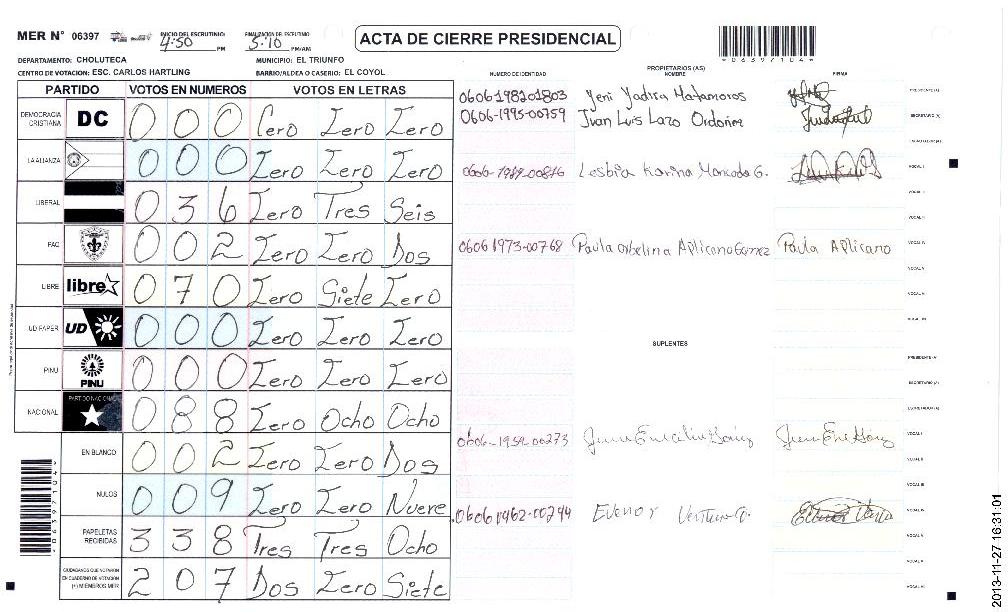 MER N° 06397
INICIO DEL ESCRUTINIO: 4:50 PM
FINALIZACION DE ESCRUTINIO 5:10 PM/AM
ACTA DE CIERRE PRESIDENCIAL
*06397104*
DEPARTAMENTO: CHOLUTECA
MUNICIPIO: EL TRIUNFO
CENTRO DE VOTACION: ESC. CARLOS HARTLING
BARRIO/ALDEA O CASERIO: EL COYOL
PARTIDO VOTOS EN NUMEROS VOTOS EN LETRAS
DEMOCRACIA CRISTIANA DC 0 0 0 Cero Zero Zero
LA ALIANZA 0 0 0 Zero Zero Zero
LIBERAL 0 3 6 Zero Tres Seis
PAC 0 0 2 Zero Zero Dos
LIBRE libre 0 7 0 Zero Siete Zero
UD FAPER UD 0 0 0 Zero Zero Zero
PINU PINU 0 0 0 Zero Zero Zero
NACIONAL PARTIDO NACIONAL 0 8 8 Zero Ocho Ocho
EN BLANCO 0 0 2 Zero Zero Dos
NULOS 0 0 9 Zero Zero Nueve
PAPELETAS RECIBIDAS 3 3 8 Tres Tres Ocho
CIUDADANOS QUE VOTARON EN CUADERNO DE VOTACION (+) MIEMBROS MER 2 0 7 Dos Zero Siete
PROPIETARIOS (AS)
NUMERO DE IDENTIDAD NOMBRE FIRMA
0606198201803 Yeni Yadira Matamoros PRESIDENTE (A)
0606-1995-00759 Juan Luis Lazo Ordoñez SECRETARIO (A)
0606-1989-00816 Lesbia Karina Moncada G. VOCAL I
0606 1973-00768 Paula Aplicano VOCAL IV
SUPLENTES
PRESIDENTE (A)
SECRETARIO (A)
0606-1959-00273 VOCAL I
0606 1962-00244 Evenor Ventura VOCAL IV
*06397104*
2013-11-27 16:31:01